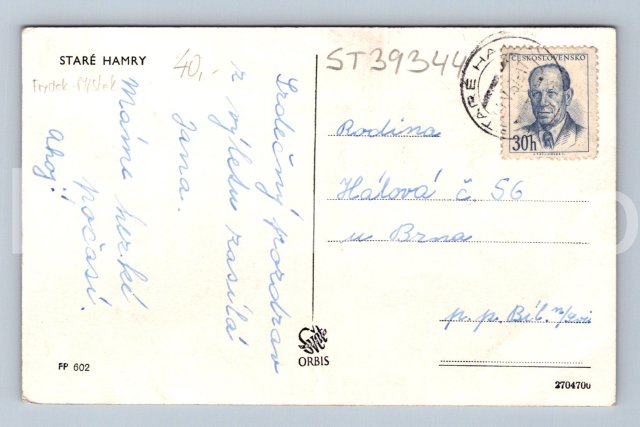 STARÉ HAMRY
40,-
ST39344
Frýdek - Místek
Srdečný pozdrav
z výletu zasílá
Jana.
Máme hezké
počasí.
Ahoj!
STARÉ HA
ČESKOSLOVENSKO
30h
Rodina
Hálová č. 56
u Brna
p. p. Bíl.
ORBIS
FP 602
2704700